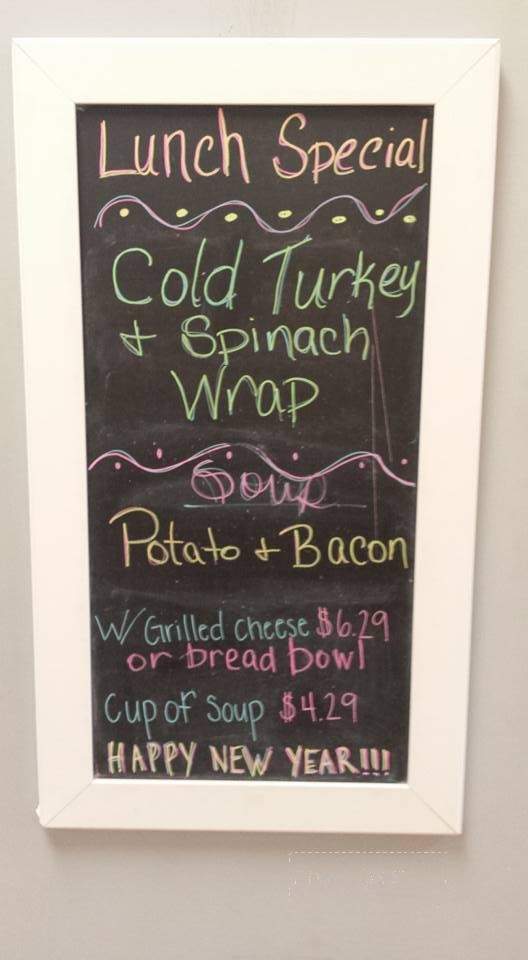 Lunch Special
Cold Turkey
+ Spinach
Wrap
Soup
Potato + Bacon
W/ Grilled cheese $6.29
or bread bowl
Cup of Soup $4.29
HAPPY NEW YEAR!!!